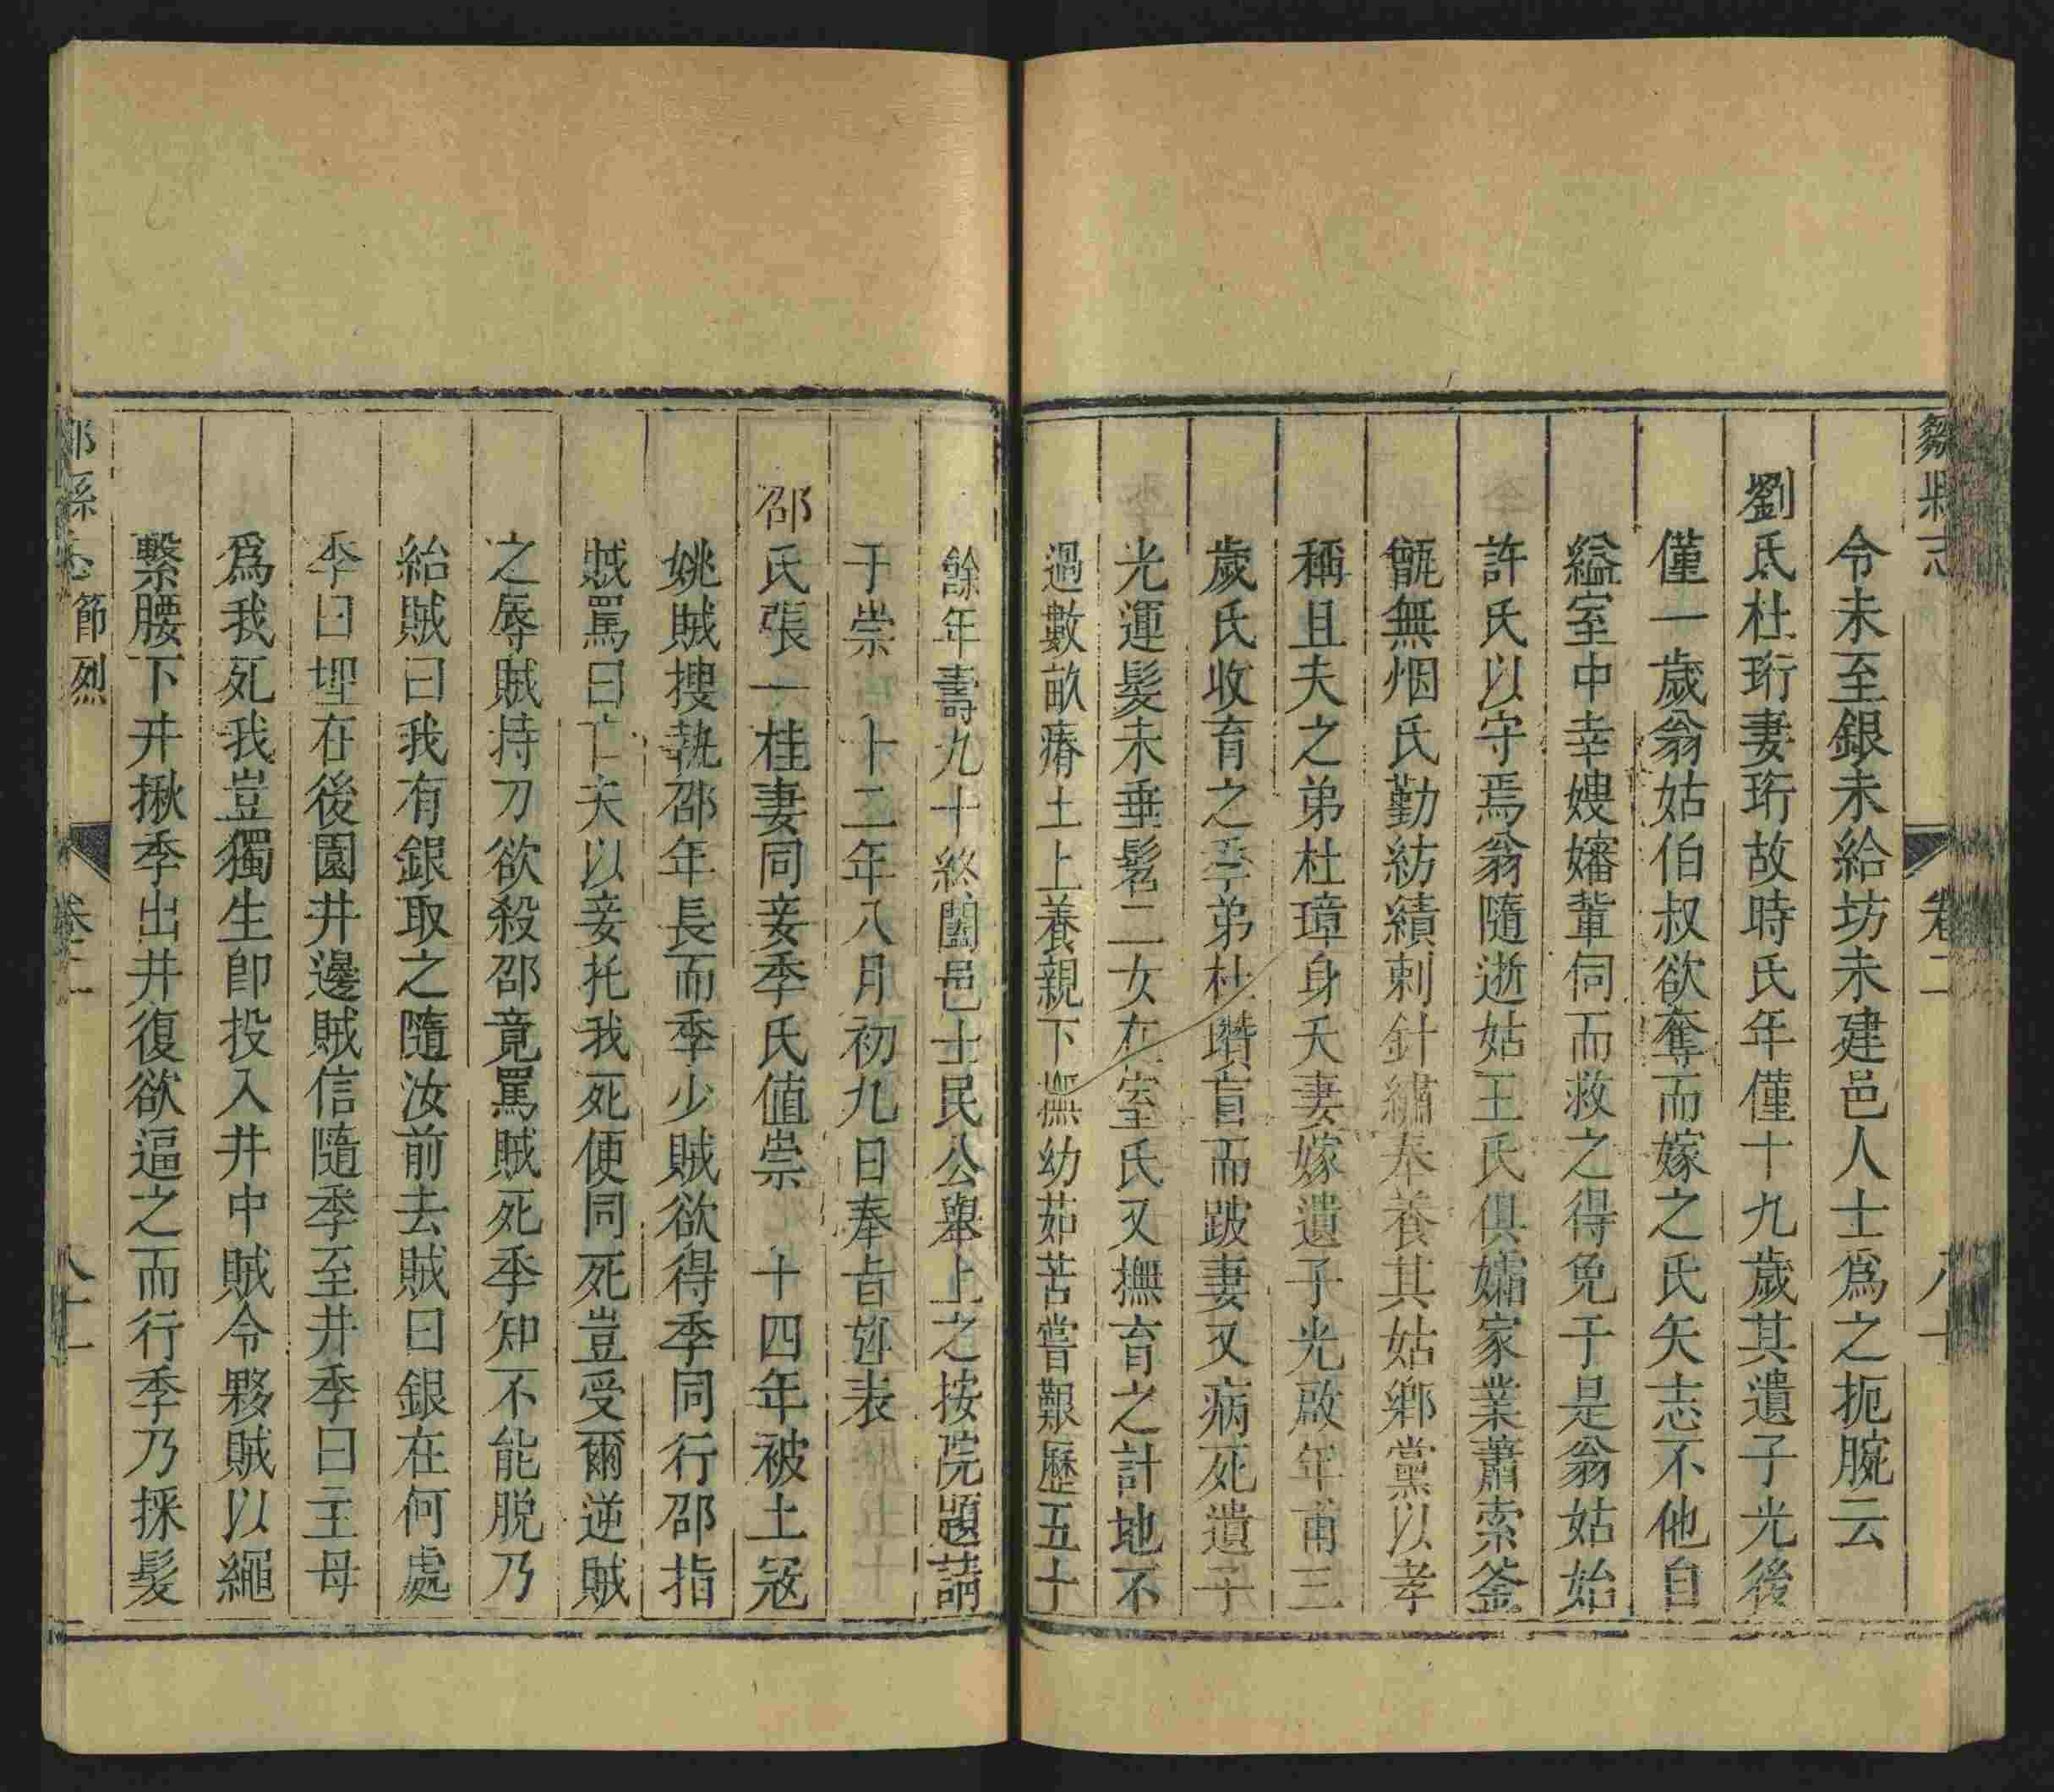 鄒縣志 卷二 八十
令未至銀未給坊未建邑人士爲之扼腕云
劉氏杜珩妻珩故時氏年僅十九歲其遺子光後
僅一歲翁姑伯叔欲奪而嫁之氏矢志不他自
縊室中幸嫂嬸輩伺而救之得免于是翁姑始
許氏以守焉翁隨逝姑王氏俱孀家業蕭索釜
甑無烟氏勤紡績刺針繡奉養其姑鄉黨以孝
稱且夫之弟杜璋身夭妻嫁遺子光啟年甫三
歲氏收育之季弟杜瓚盲而跛妻又病死遺子
光運髮未垂髫二女在室氏又撫育之計地不
過數畝瘠土上養親下撫幼茹苦嘗艱歷五十
餘年壽九十終闔邑士民公舉上之按院題請
于崇 十二年八月初九日奉旨旌表
邵氏張一桂妻同妾季氏值崇 十四年被土寇
姚賊搜執邵年長而季少賊欲得季同行邵指
賊罵曰亡夫以妾托我死便同死豈受爾逆賊
之辱賊持刀欲殺邵竟罵賊死季知不能脫乃
紿賊曰我有銀取之隨汝前去賊曰銀在何處
季曰埋在後園井邊賊信隨季至井季曰主母
爲我死我豈獨生卽投入井中賊令夥賊以繩
繫腰下井揪季出井復欲逼之而行季乃採髮
節烈 卷二 八十一